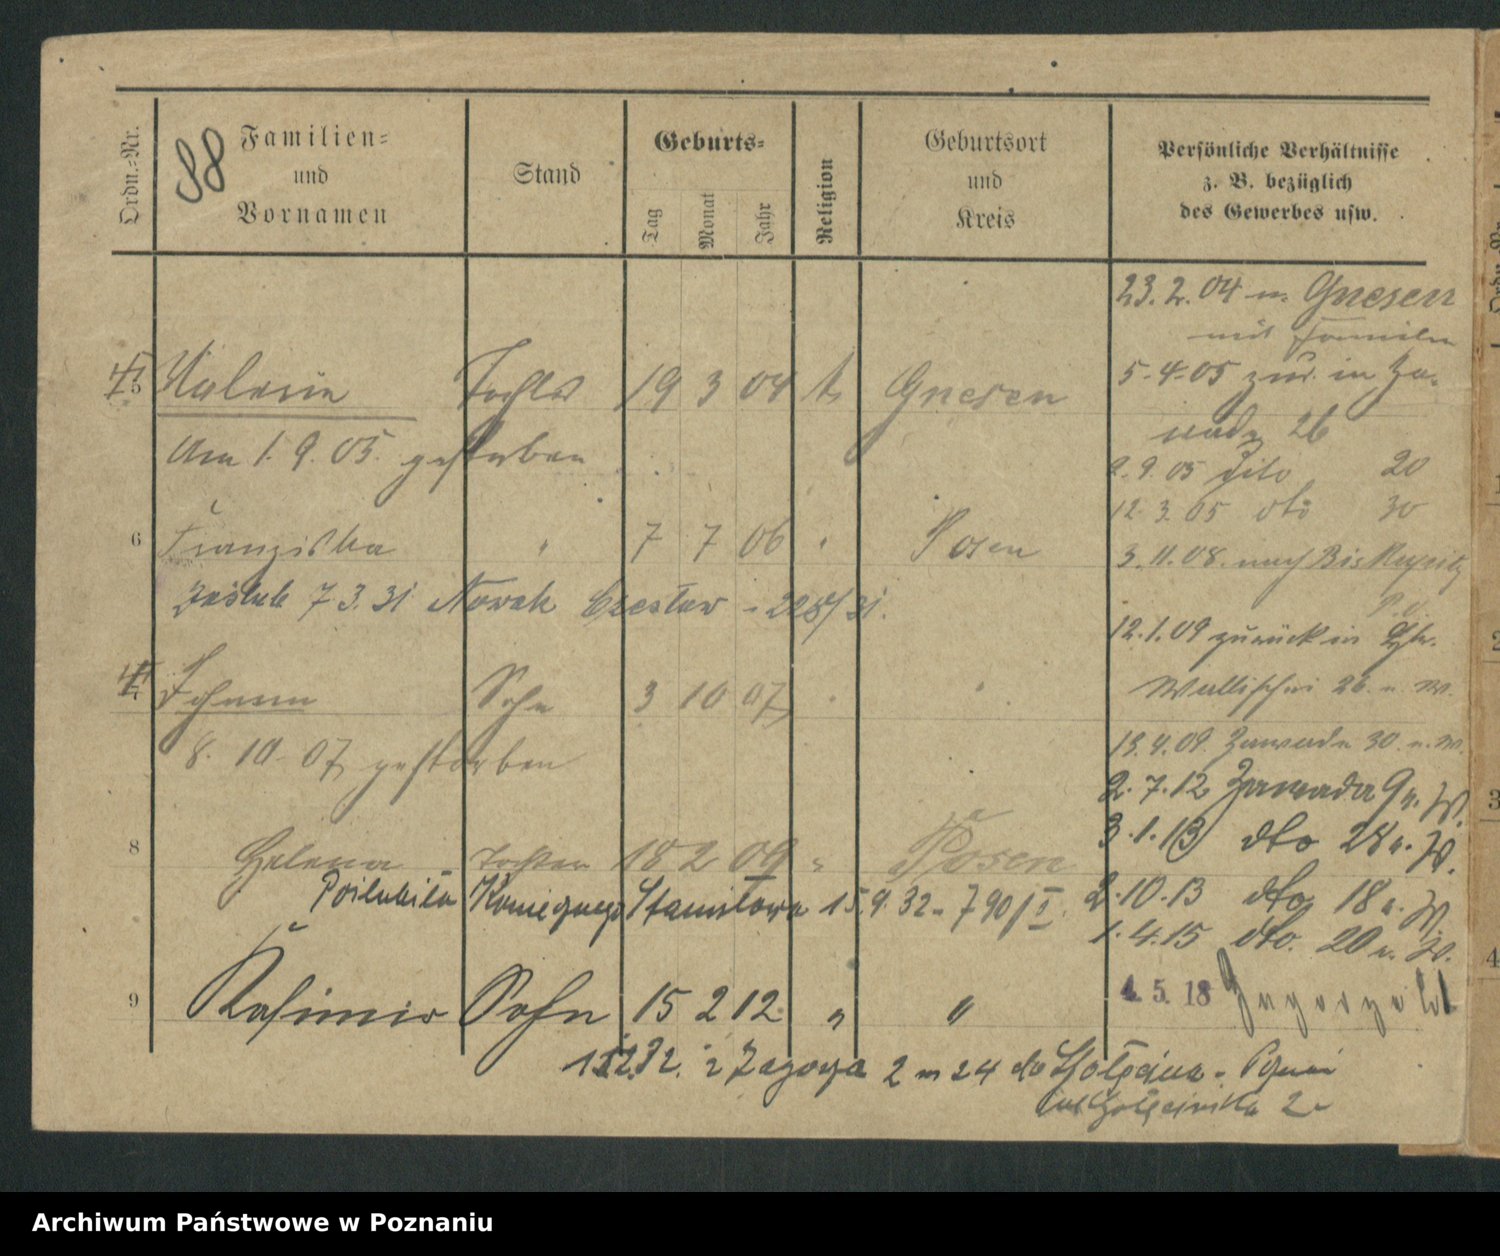 88
Ordn.-Nr.
Familien-
und
Vornamen
Stand
Geburts-
Tag
Monat
Jahr
Religion
Geburtsort
und
Kreis
Persönliche Verhältnisse
z. B. bezüglich
des Gewerbes usw.
23.2.04 n. Gnesen
mit Familie
5 Valerie Tochter 19 3 04 k Gnesen
5.4.05 zur. in Za-
wady 26
Am 1.9.05. gestorben
2.9.05 dito 20
12.3.05 dto 30
6 Franziska " 7 7 06 " Posen
3.11.08. nach Biskupitz
zaślub 7 3. 31 Nowak Czesław - 228/31.
12.1.09 zurück in
Wallischei 26. n. W.
7 Johann Sohn 3 10 07 " "
13.4.09. Zawade 30. n. W.
8. 10. 07 gestorben
2.7.12 Zawada 9 n. W.
3.1.13 dto 28 n. W.
8 Helena Tochter 18 2 09 " Posen
Poślubiła Koniecznego Stanisława 15.9.32 - 790/I
2.10.13 dto 18 n. W.
1.4.15 dto. 20 n. W.
9 Kasimir Sohn 15 2 12 " "
4. 5. 18
2 Zagorza 2 m 24 do - Pznań
2
Archiwum Państwowe w Poznaniu